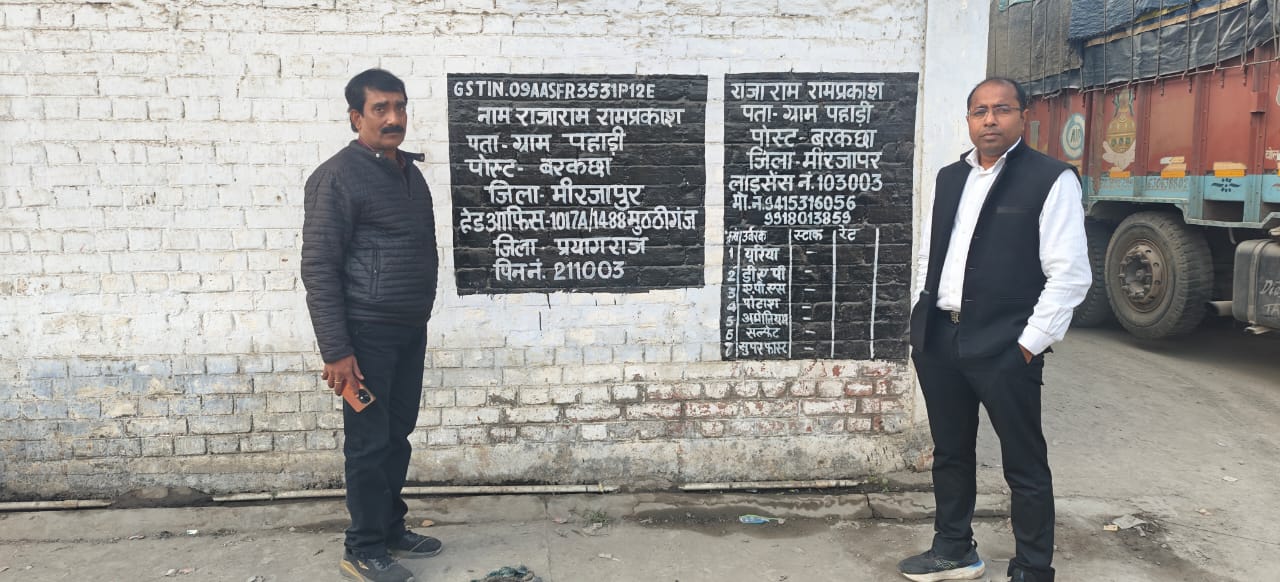 GSTIN.09AASFR3531P1ZE
नाम राजाराम रामप्रकाश
पता- ग्राम पहाड़ी
पोस्ट- बरकछा
जिला- मीरजापुर
हेड आफिस-1017A/1488 मुठठीगंज
जिला प्रयागराज
पिन नं. 211003
राजा राम रामप्रकाश
पता- ग्राम पहाड़ी
पोस्ट- बरकछा
जिला- मीरजापर
लाइसेंस नं. 103003
मो.न.9415316056
9918013859
उर्वरक स्टाक रेट
1 यूरिया -
2 डी.ए.पी -
3 ए.पी.एस -
4 पोटाश -
5 अमोनियम -
6 सल्फेट -
7 सुपर फास्ट -